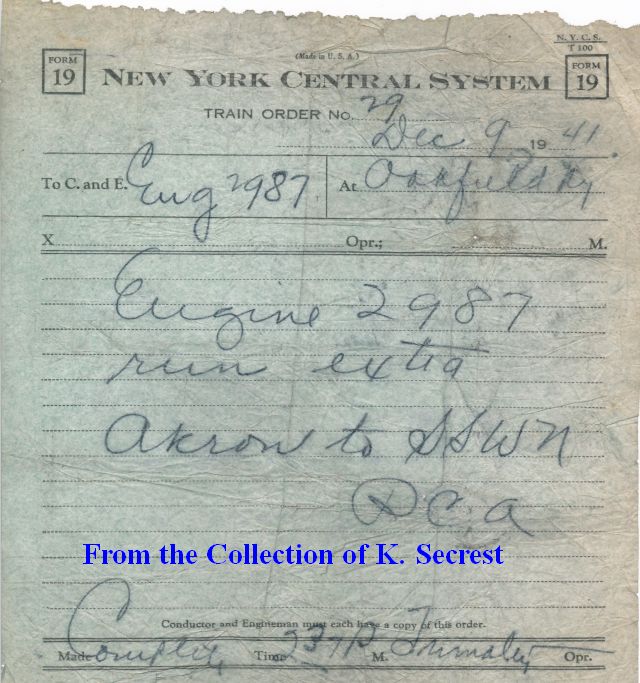 (Made in U. S. A.)
N. Y. C. S.
T 100
FORM
19
NEW YORK CENTRAL SYSTEM
FORM
19
TRAIN ORDER No. 29
Dec 9 1941.
To C. and E. Eng 2987 At Oakfield Ny
X Opr.; M.
Engine 2987
run extra
Akron to SSWN
D C A
From the Collection of K. Secrest
Conductor and Engineman must each have a copy of this order.
Made Complete Time 237 P M. Opr.